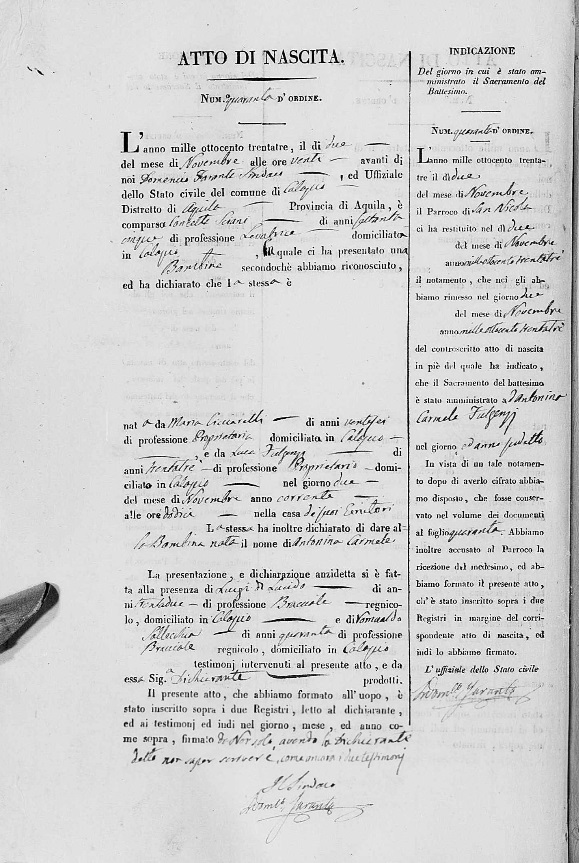 ATTO DI NASCITA.
NUM. quaranta D'ORDINE.
L'anno mille ottocento trentatre, il dì due
del mese di Novembre alle ore venti avanti di
noi Domenico Taranta Sindaco, ed Uffiziale
dello Stato civile del comune di Calascio
Distretto di Aquila Provincia di Aquila, è
comparso di anni settanta
cinque di professione Levatrice domiciliata
in , la quale ci ha presentato una
Bambina secondochè abbiamo riconosciuto,
ed ha dichiarato che la stessa è
nata da Maria Ciccarelli di anni ventisei
di professione Proprietaria domiciliata in
, e da Luca Fulgenzj di
anni trentatré di professione Proprietario domi-
ciliato in nel giorno due
del mese di Novembre anno corrente
alle ore dodici nella casa de' suoi Genitori
La stessa ha inoltre dichiarato di dare al
la Bambina nata il nome di Antonina Carmela
La presentazione, e dichiarazione anzidetta si è fat-
ta alla presenza di Luigi di Lucido di an-
ni trentadue di professione Bracciale regnico-
lo, domiciliato in e di Romualdo
di anni quaranta di professione
Bracciale regnicolo, domiciliato in
testimonj intervenuti al presente atto, e da
essa Sig.a Dichiarante prodotti.
Il presente atto, che abbiamo formato all'uopo, è
stato inscritto sopra i due Registri, letto al dichiarante,
ed ai testimonj ed indi nel giorno, mese, ed anno co-
me sopra, firmato da Noi solo, avendo la Dichiarante
detto non saper scrivere, come ancora i due testimonj
Il Sindaco
Dom.co Taranta
INDICAZIONE
Del giorno in cui è stato am-
ministrato il Sacramento del
Battesimo.
NUM. quaranta D'ORDINE.
L'anno mille ottocento trenta-
tre il dì due
del mese di Novembre
il Parroco di San Nicola
ci ha restituito nel dì due
del mese di Novembre
anno mille ottocento trentatré
il notamento, che noi gli ab-
biamo rimesso nel giorno due
del mese di Novembre
anno mille ottocento trentatré
del controscritto atto di nascita
in piè del quale ha indicato,
che il Sacramento del battesimo
è stato amministrato a Antonina
Carmela Fulgenzj
nel giorno ed anno suddetto
In vista di un tale notamento
dopo di averlo cifrato abbia-
mo disposto, che fosse conser-
vato nel volume dei documenti
al foglio quaranta. Abbiamo
inoltre accusato al Parroco la
ricezione del medesimo, ed ab-
biamo formato il presente atto,
ch'è stato inscritto sopra i due
Registri in margine del corri-
spondente atto di nascita, ed
indi lo abbiamo firmato.
L'uffiziale dello Stato civile
Dom.co Taranta